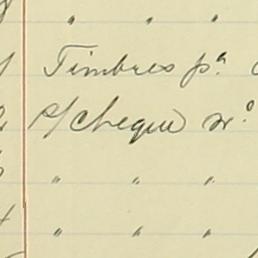 " " "
Timbres pª
s/cheque nº
" " "
" " "